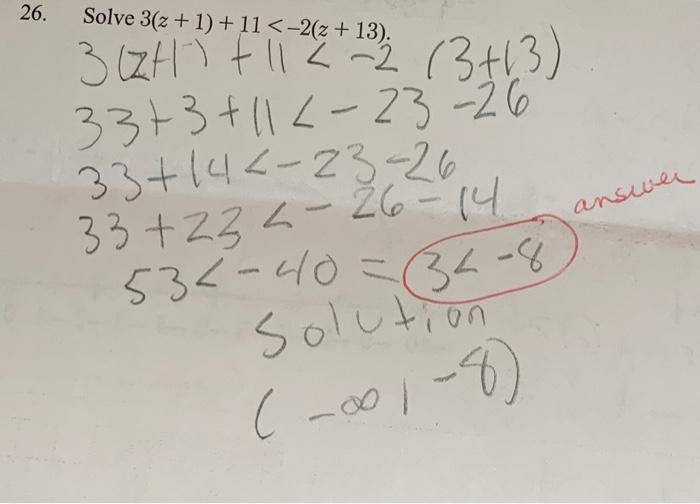 26. Solve 3(z + 1) + 11 < -2(z + 13).
3(z+1) + 11 < -2 (3+13)
33+3+11<-23-26
33+14<-23-26
33+23<-26-14
answer
53<-40=3<-8
Solution
(-∞, -8)